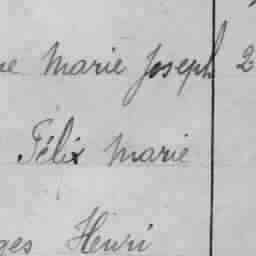 ne Marie Joseph 2
Félix Marie
ges Henri